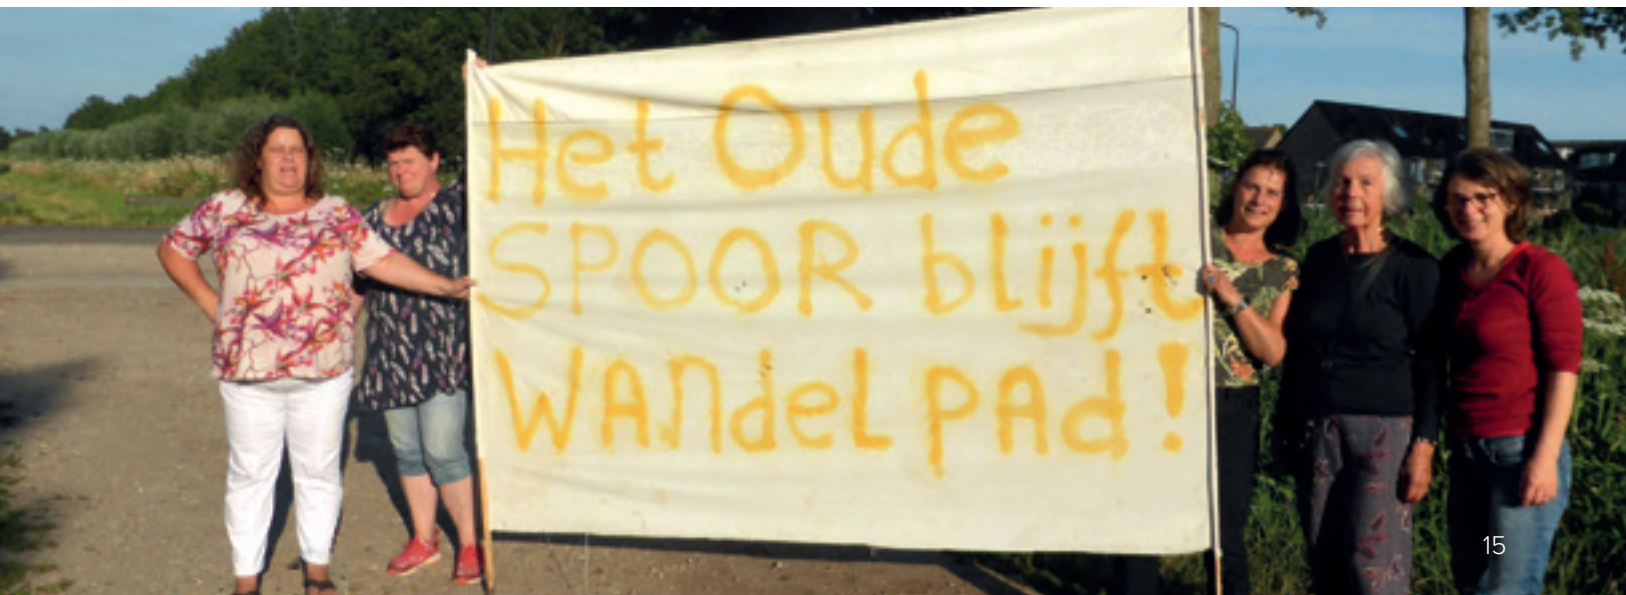 Het Oude
SPOOR blijft
WANdeL pAd!
15